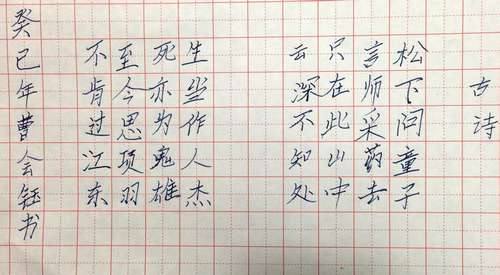 古诗
松下问童子
言师采药去
只在此山中
云深不知处
生当作人杰
死亦为鬼雄
至今思项羽
不肯过江东
癸巳年曹会钰书